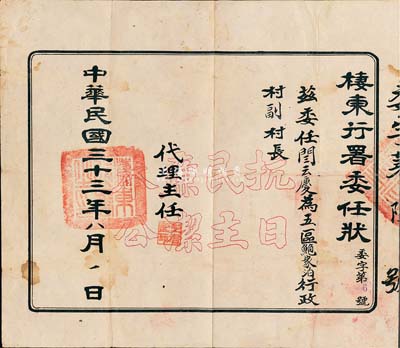 委字第　號
棲東行署委任狀
委字第　號
茲委任閆云慶為五區　行政
村副村長
抗民廉
日主潔公
代理主任
中華民國三十三年八月　日